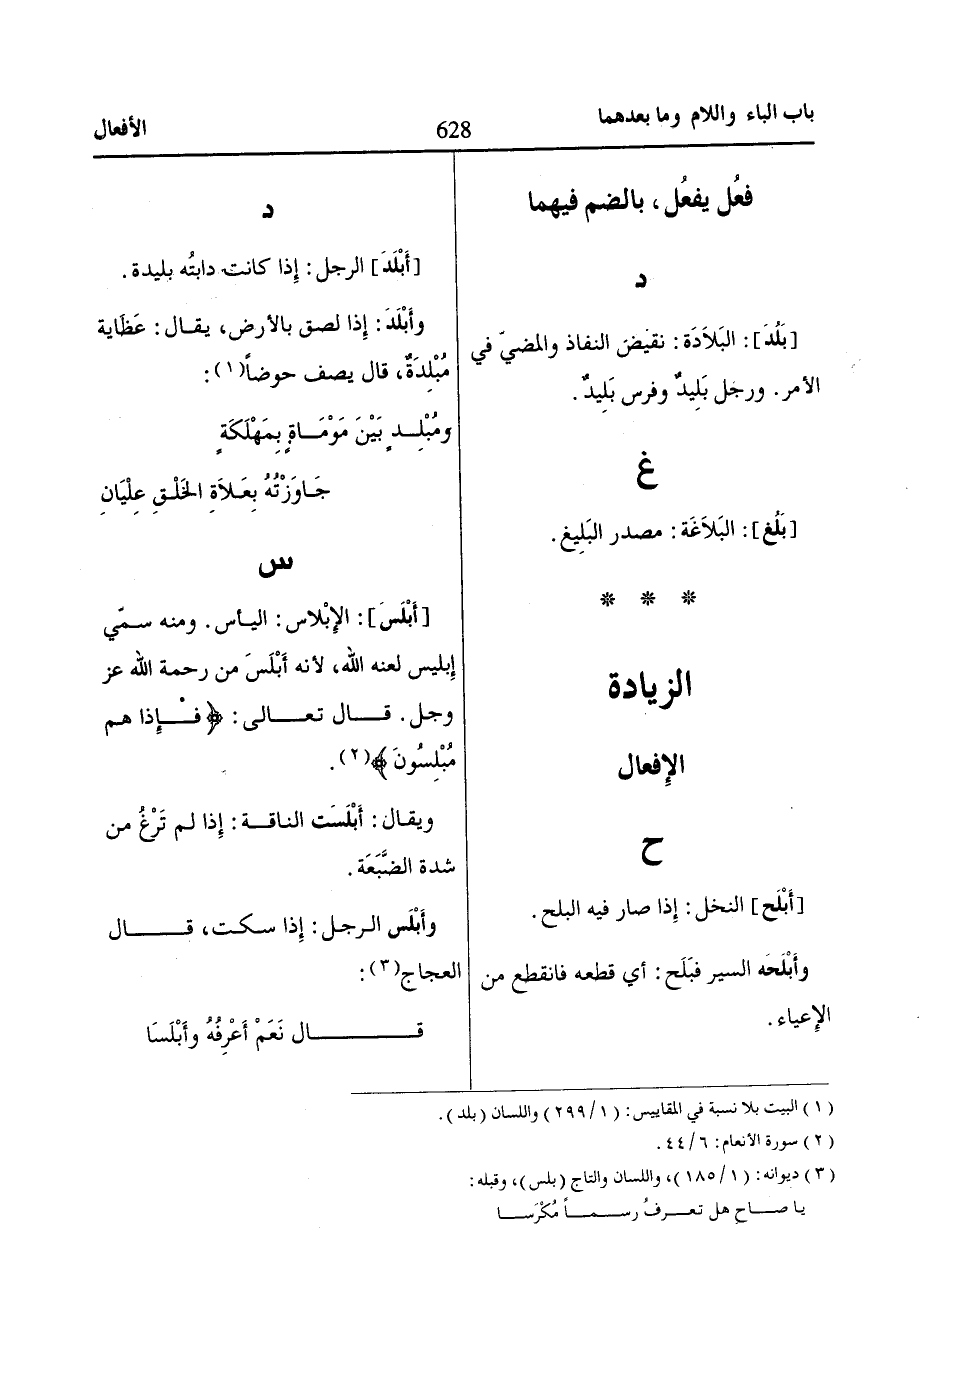 باب الباء واللام وما بعدهما
628
الأفعال
فعُل يفعُل، بالضم فيهما
د
[بَلُدَ]: البَلاَدَة: نقيض النفاذ والمضيّ في
الأمر. ورجل بَلِيدٌ وفرس بَلِيدٌ.
غ
[بَلُغ]: البَلاَغَة: مصدر البَلِيغ.
* * *
الزيادة
الإفعال
ح
[أَبْلَح] النخل: إذا صار فيه البلح.
وأَبْلَحَه السير فبَلَح: أي قطعه فانقطع من
الإعياء.
د
[أَبْلَدَ] الرجل: إذا كانت دابتُه بليدة.
وأَبْلَدَ: إذا لصق بالأرض، يقال: عَظَاية
مُبْلِدَةٌ، قال يصف حوضاً(١):
ومُبْلِدٍ بَيْنَ مَوْمَاةٍ بِمَهْلَكَةٍ
جَاوَزْتُهُ بِعَلاَةِ الخَلْقِ عِلْيَانِ
س
[أَبْلَسَ]: الإِبْلاس: اليأس. ومنه سمّي
إبليس لعنه الله، لأنه أَبْلَسَ من رحمة الله عز
وجل. قال تعالى: ﴿فإذا هم
مُبْلِسُونَ﴾(٢).
ويقال: أَبْلَسَت الناقة: إذا لم تَرْغُ من
شدة الضَّبَعَة.
وأَبْلَس الرجل: إذا سكت، قال
العجاج(٣):
قال نَعَمْ أعْرِفُهُ وأَبْلَسَا
(١) البيت بلا نسبة في المقاييس: (٢٩٩/١) واللسان (بلد).
(٢) سورة الأنعام: ٤٤/٦.
(٣) ديوانه: (١٨٥/١)، واللسان والتاج (بلس)، وقبله:
يا صاحِ هل تعرفُ رسماً مُكْرَسا